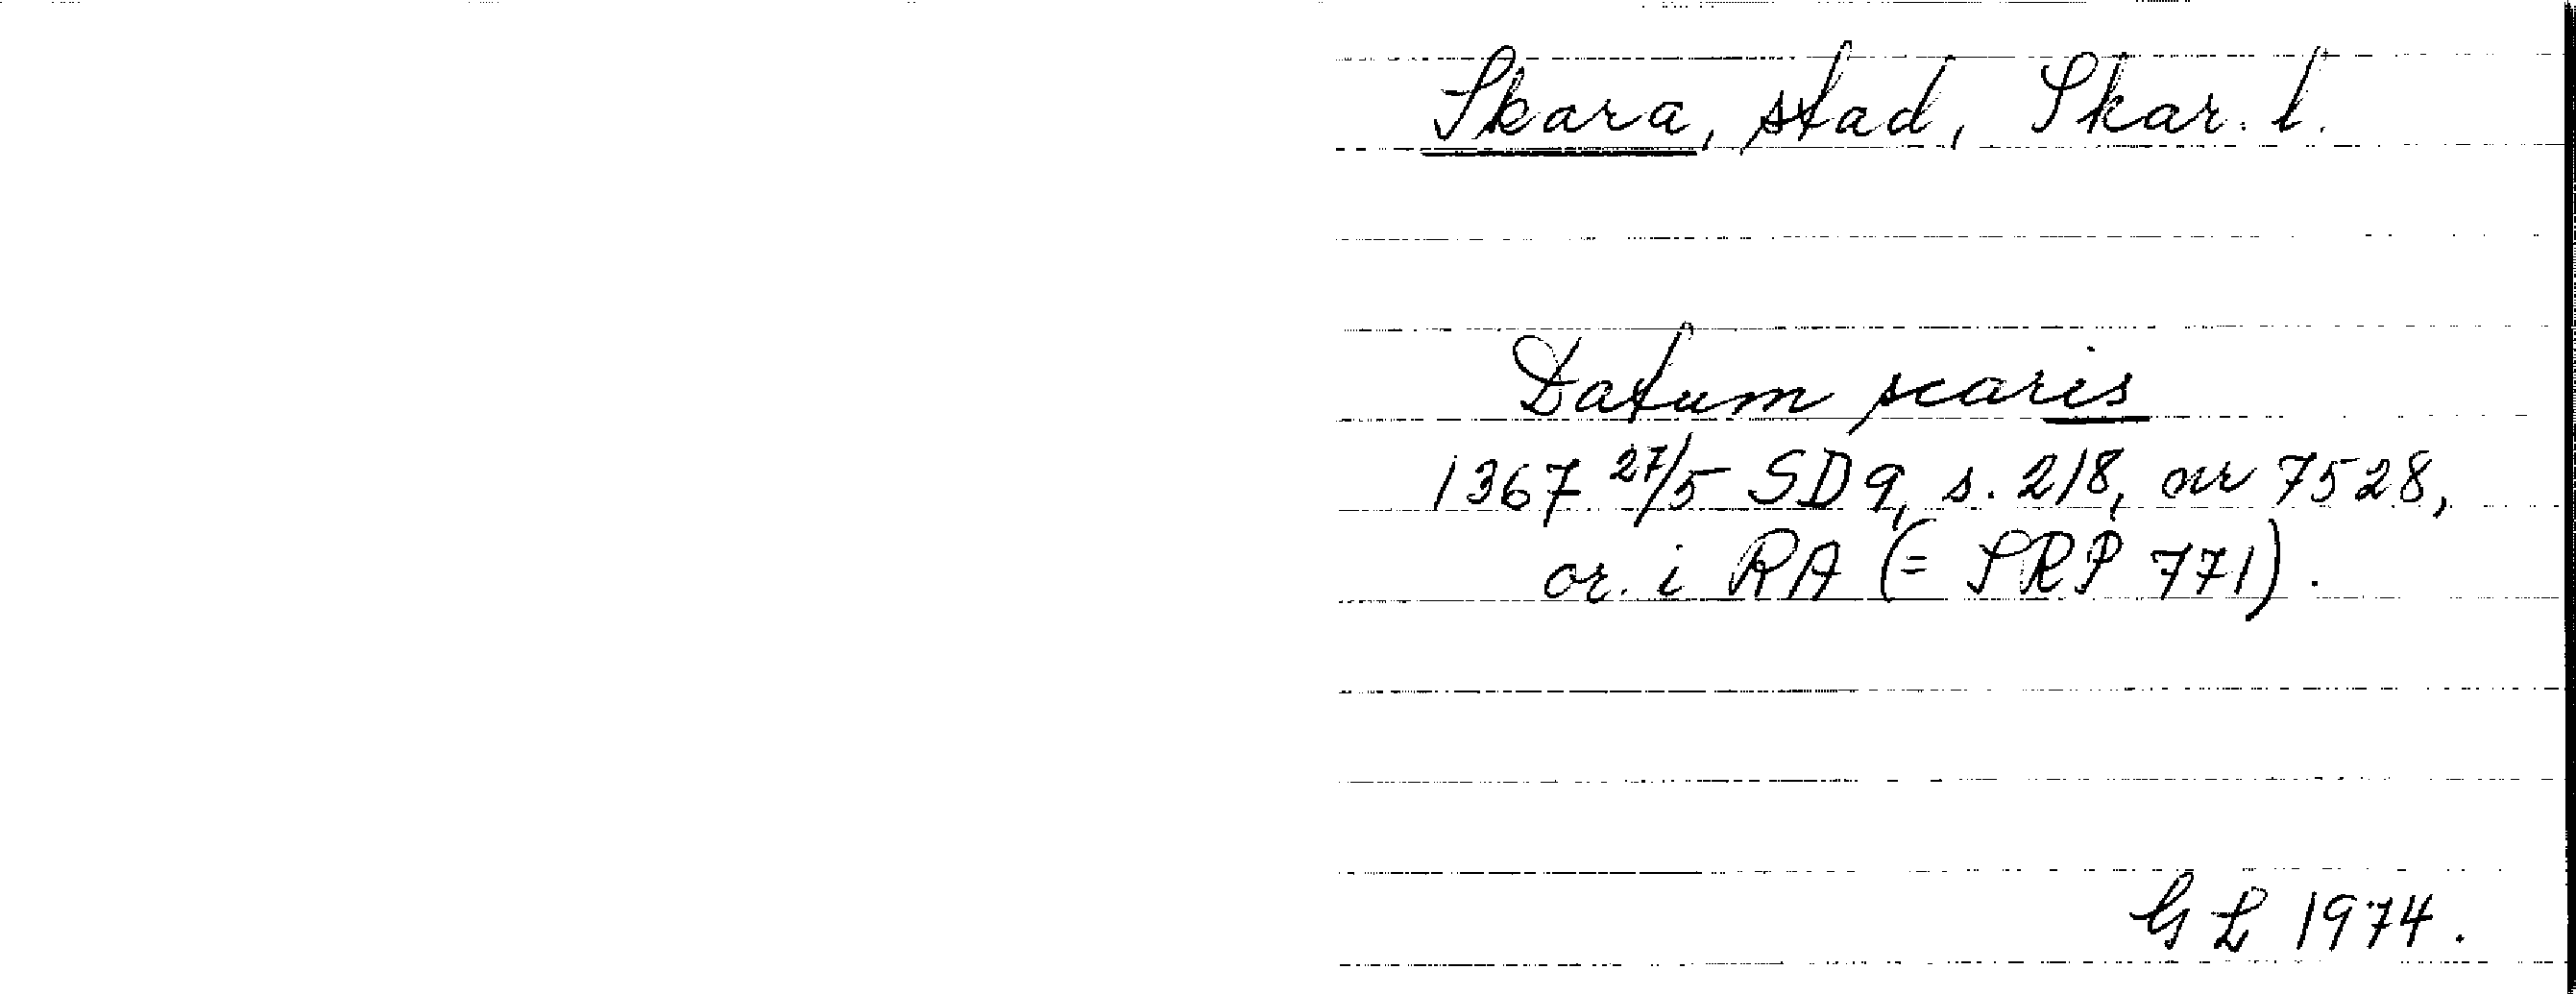 Skara, stad, Skar. l.
Datum scaris
1367 27/5 SD 9, s. 218, nr 7528,
or. i RA (= SRP 771).
GL 1974.